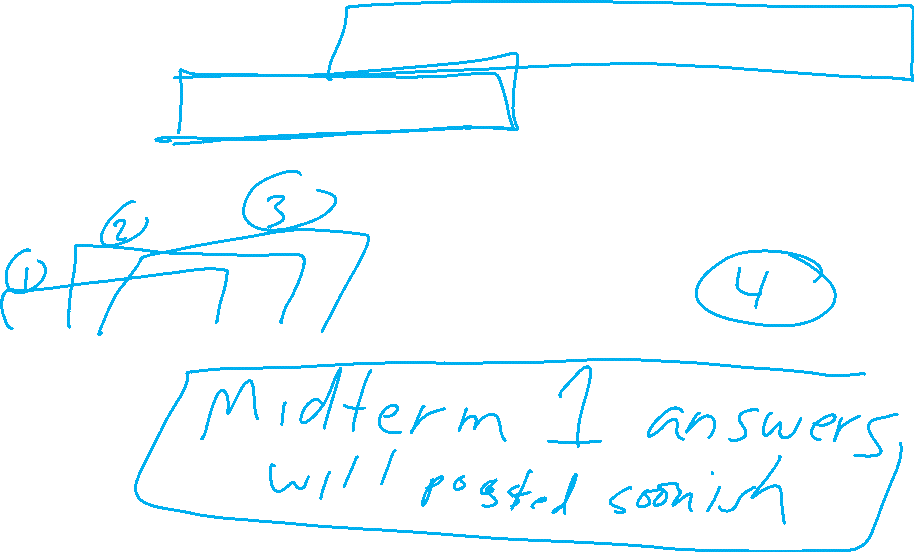 3
2
1
4
Midterm 1 answers
will posted soonish